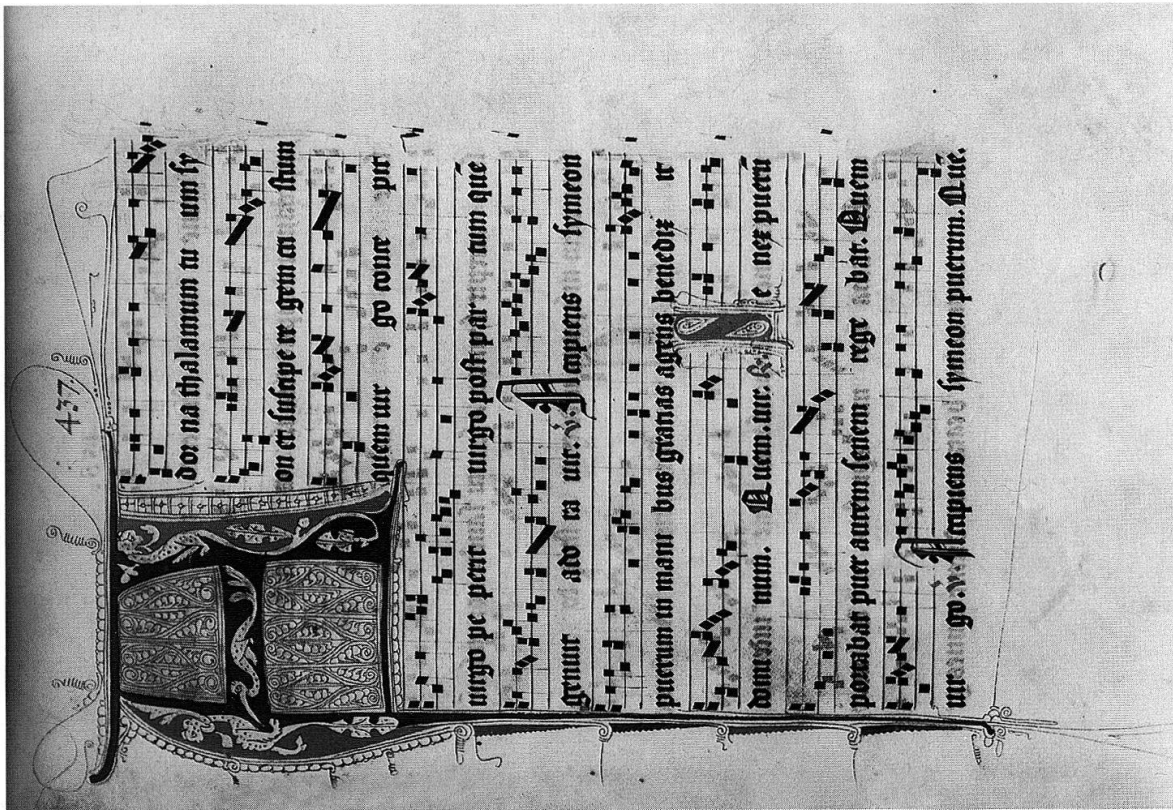 437.
A dor na thalamum tu um sy
on et suscipe re gem cri stum
quem uir go conce pit
uirgo pe perit uirgo post par tum quē
genuit ado ra uit. v. Accipiens symeon
puerum in mani bus gratias agens benedix it
domi num. Quem. uir. R. Se nex puerū
portabat puer autem senem rege bat. Quem
uir go. v. Accipiens symeon puerum. Quē.